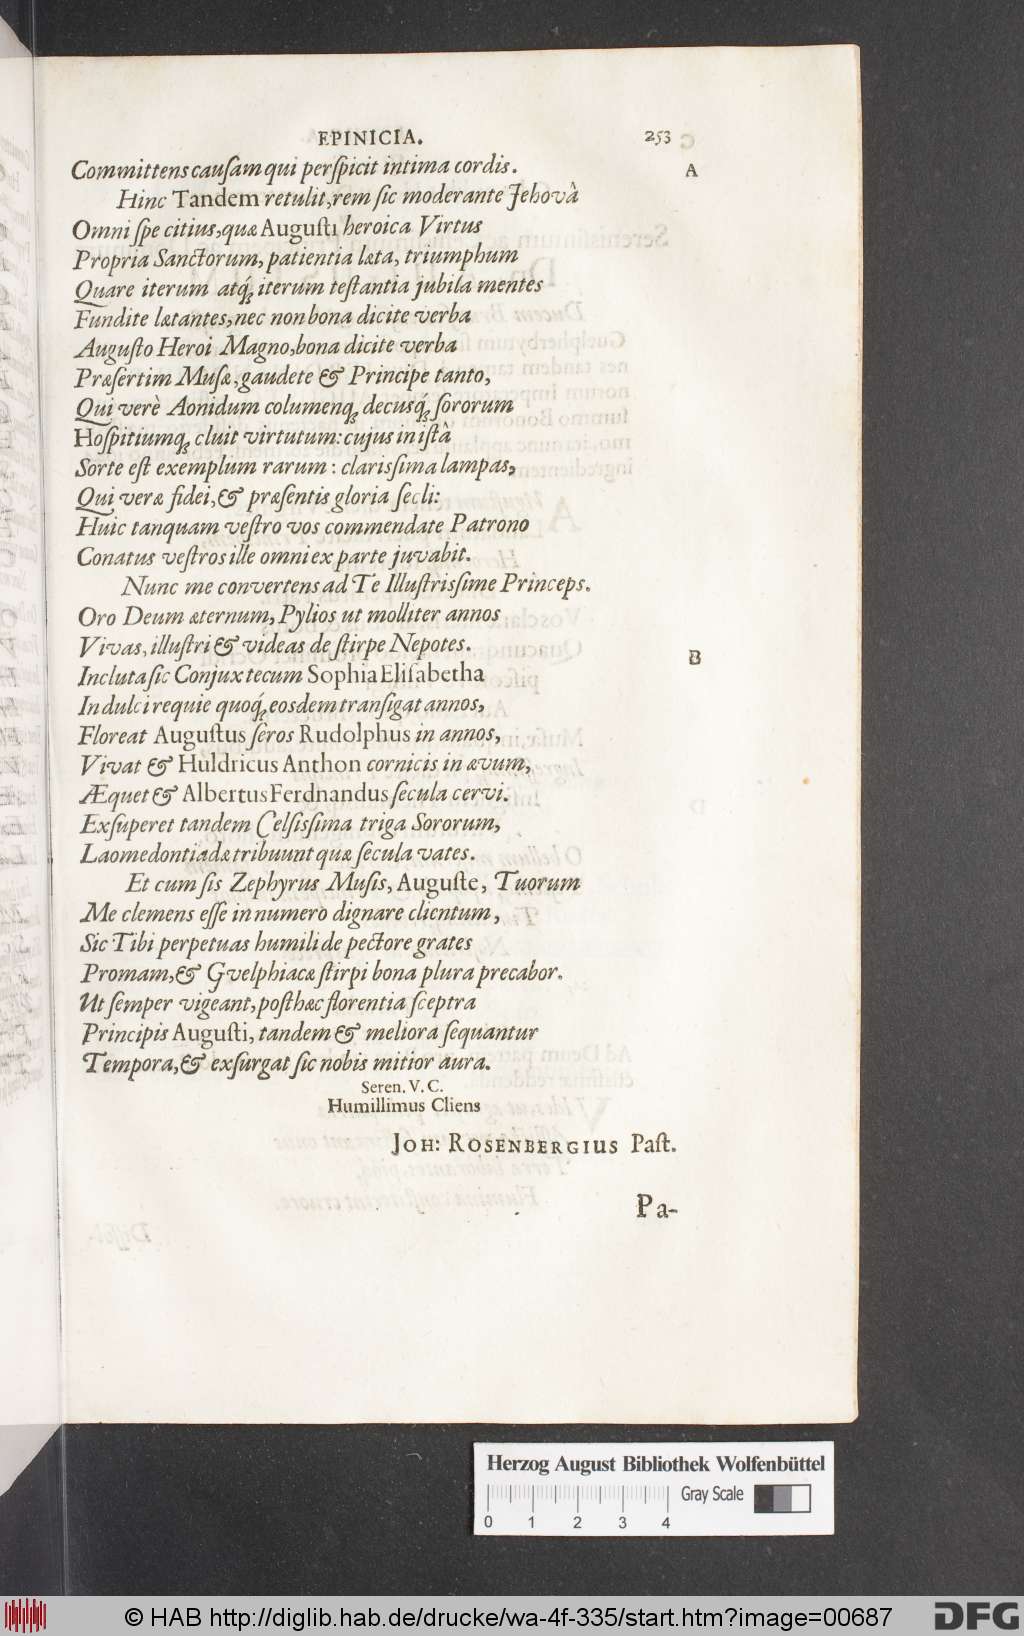 EPINICIA. 253
Committens causam qui perspicit intima cordis. A
Hinc Tandem retulit, rem sic moderante Jehovâ
Omni spe citius, quæ Augusti heroica Virtus
Propria Sanctorum, patientia læta, triumphum
Quare iterum atq́; iterum testantia jubila mentes
Fundite lætantes, nec non bona dicite verba
Augusto Heroi Magno, bona dicite verba
Præsertim Musæ, gaudete & Principe tanto,
Qui verè Aonidum columenq; decusq́; sororum
Hospitiumq; cluit virtutum: cujus in istâ
Sorte est exemplum rarum: clarissima lampas,
Qui veræ fidei, & præsentis gloria secli:
Huic tanquam vestro vos commendate Patrono
Conatus vestros ille omni ex parte juvabit.
Nunc me convertens ad Te Illustrissime Princeps.
Oro Deum æternum, Pylios ut molliter annos
Vivas, illustri & videas de stirpe Nepotes. B
Incluta sic Conjux tecum Sophia Elisabetha
In dulci requie quoq́; eosdem transigat annos,
Floreat Augustus seros Rudolphus in annos,
Vivat & Huldricus Anthon cornicis in ævum,
Æquet & Albertus Ferdnandus secula cervi.
Exsuperet tandem Celsissima triga Sororum,
Laomedontiadæ tribuunt quæ secula vates.
Et cum sis Zephyrus Musis, Auguste, Tuorum
Me clemens esse in numero dignare clientum,
Sic Tibi perpetuas humili de pectore grates
Promam, & Gvelphiacæ stirpi bona plura precabor.
Ut semper vigeant, posthæc florentia sceptra
Principis Augusti, tandem & meliora sequantur
Tempora, & exsurgat sic nobis mitior aura.
Seren. V. C.
Humillimus Cliens
JOH: ROSENBERGIUS Past.
Pa-
Herzog August Bibliothek Wolfenbüttel
Gray Scale
0 1 2 3 4
© HAB http://diglib.hab.de/drucke/wa-4f-335/start.htm?image=00687 DFG